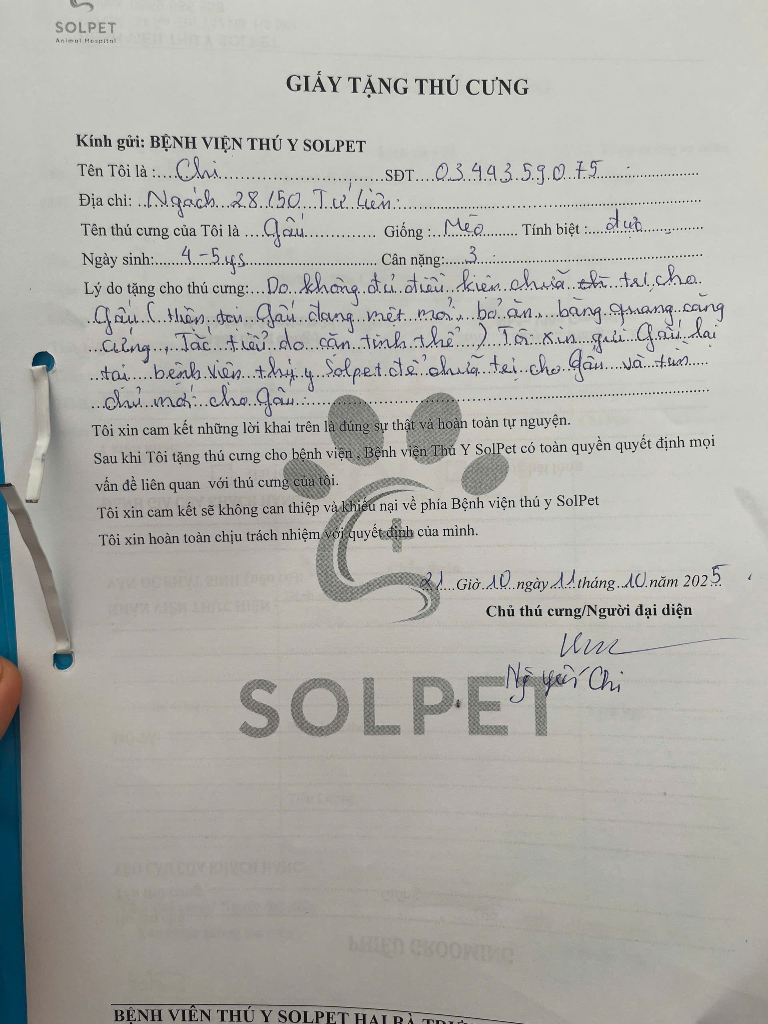 SOLPET
Animal Hospital
GIẤY TẶNG THÚ CƯNG
Kính gửi: BỆNH VIỆN THÚ Y SOLPET
Tên Tôi là : Chi SĐT 0349359075
Địa chỉ: Ngách 28/50 Tứ Liên
Tên thú cưng của Tôi là Gấu Giống : Mèo Tính biệt : đực
Ngày sinh: 4-5ys Cân nặng: 3
Lý do tặng cho thú cưng: Do không đủ điều kiện chữa trị cho
Gấu (Hiện tại Gấu đang mệt mỏi, bỏ ăn, bàng quang căng
cứng, Tắc tiểu do cặn tinh thể) Tôi xin gửi Gấu lại
tại bệnh viện thú y Solpet để chữa trị cho Gấu và tìm
chủ mới cho Gấu.
Tôi xin cam kết những lời khai trên là đúng sự thật và hoàn toàn tự nguyện.
Sau khi Tôi tặng thú cưng cho bệnh viện , Bệnh viện Thú Y SolPet có toàn quyền quyết định mọi
vấn đề liên quan với thú cưng của tôi.
Tôi xin cam kết sẽ không can thiệp và khiếu nại về phía Bệnh viện thú y SolPet
Tôi xin hoàn toàn chịu trách nhiệm với quyết định của mình.
21 Giờ 10 ngày 11 tháng 10 năm 2025
Chủ thú cưng/Người đại diện
Nguyễn Chi
SOLPET
PHIẾU GROOMING
BỆNH VIỆN THÚ Y SOLPET HAI BÀ